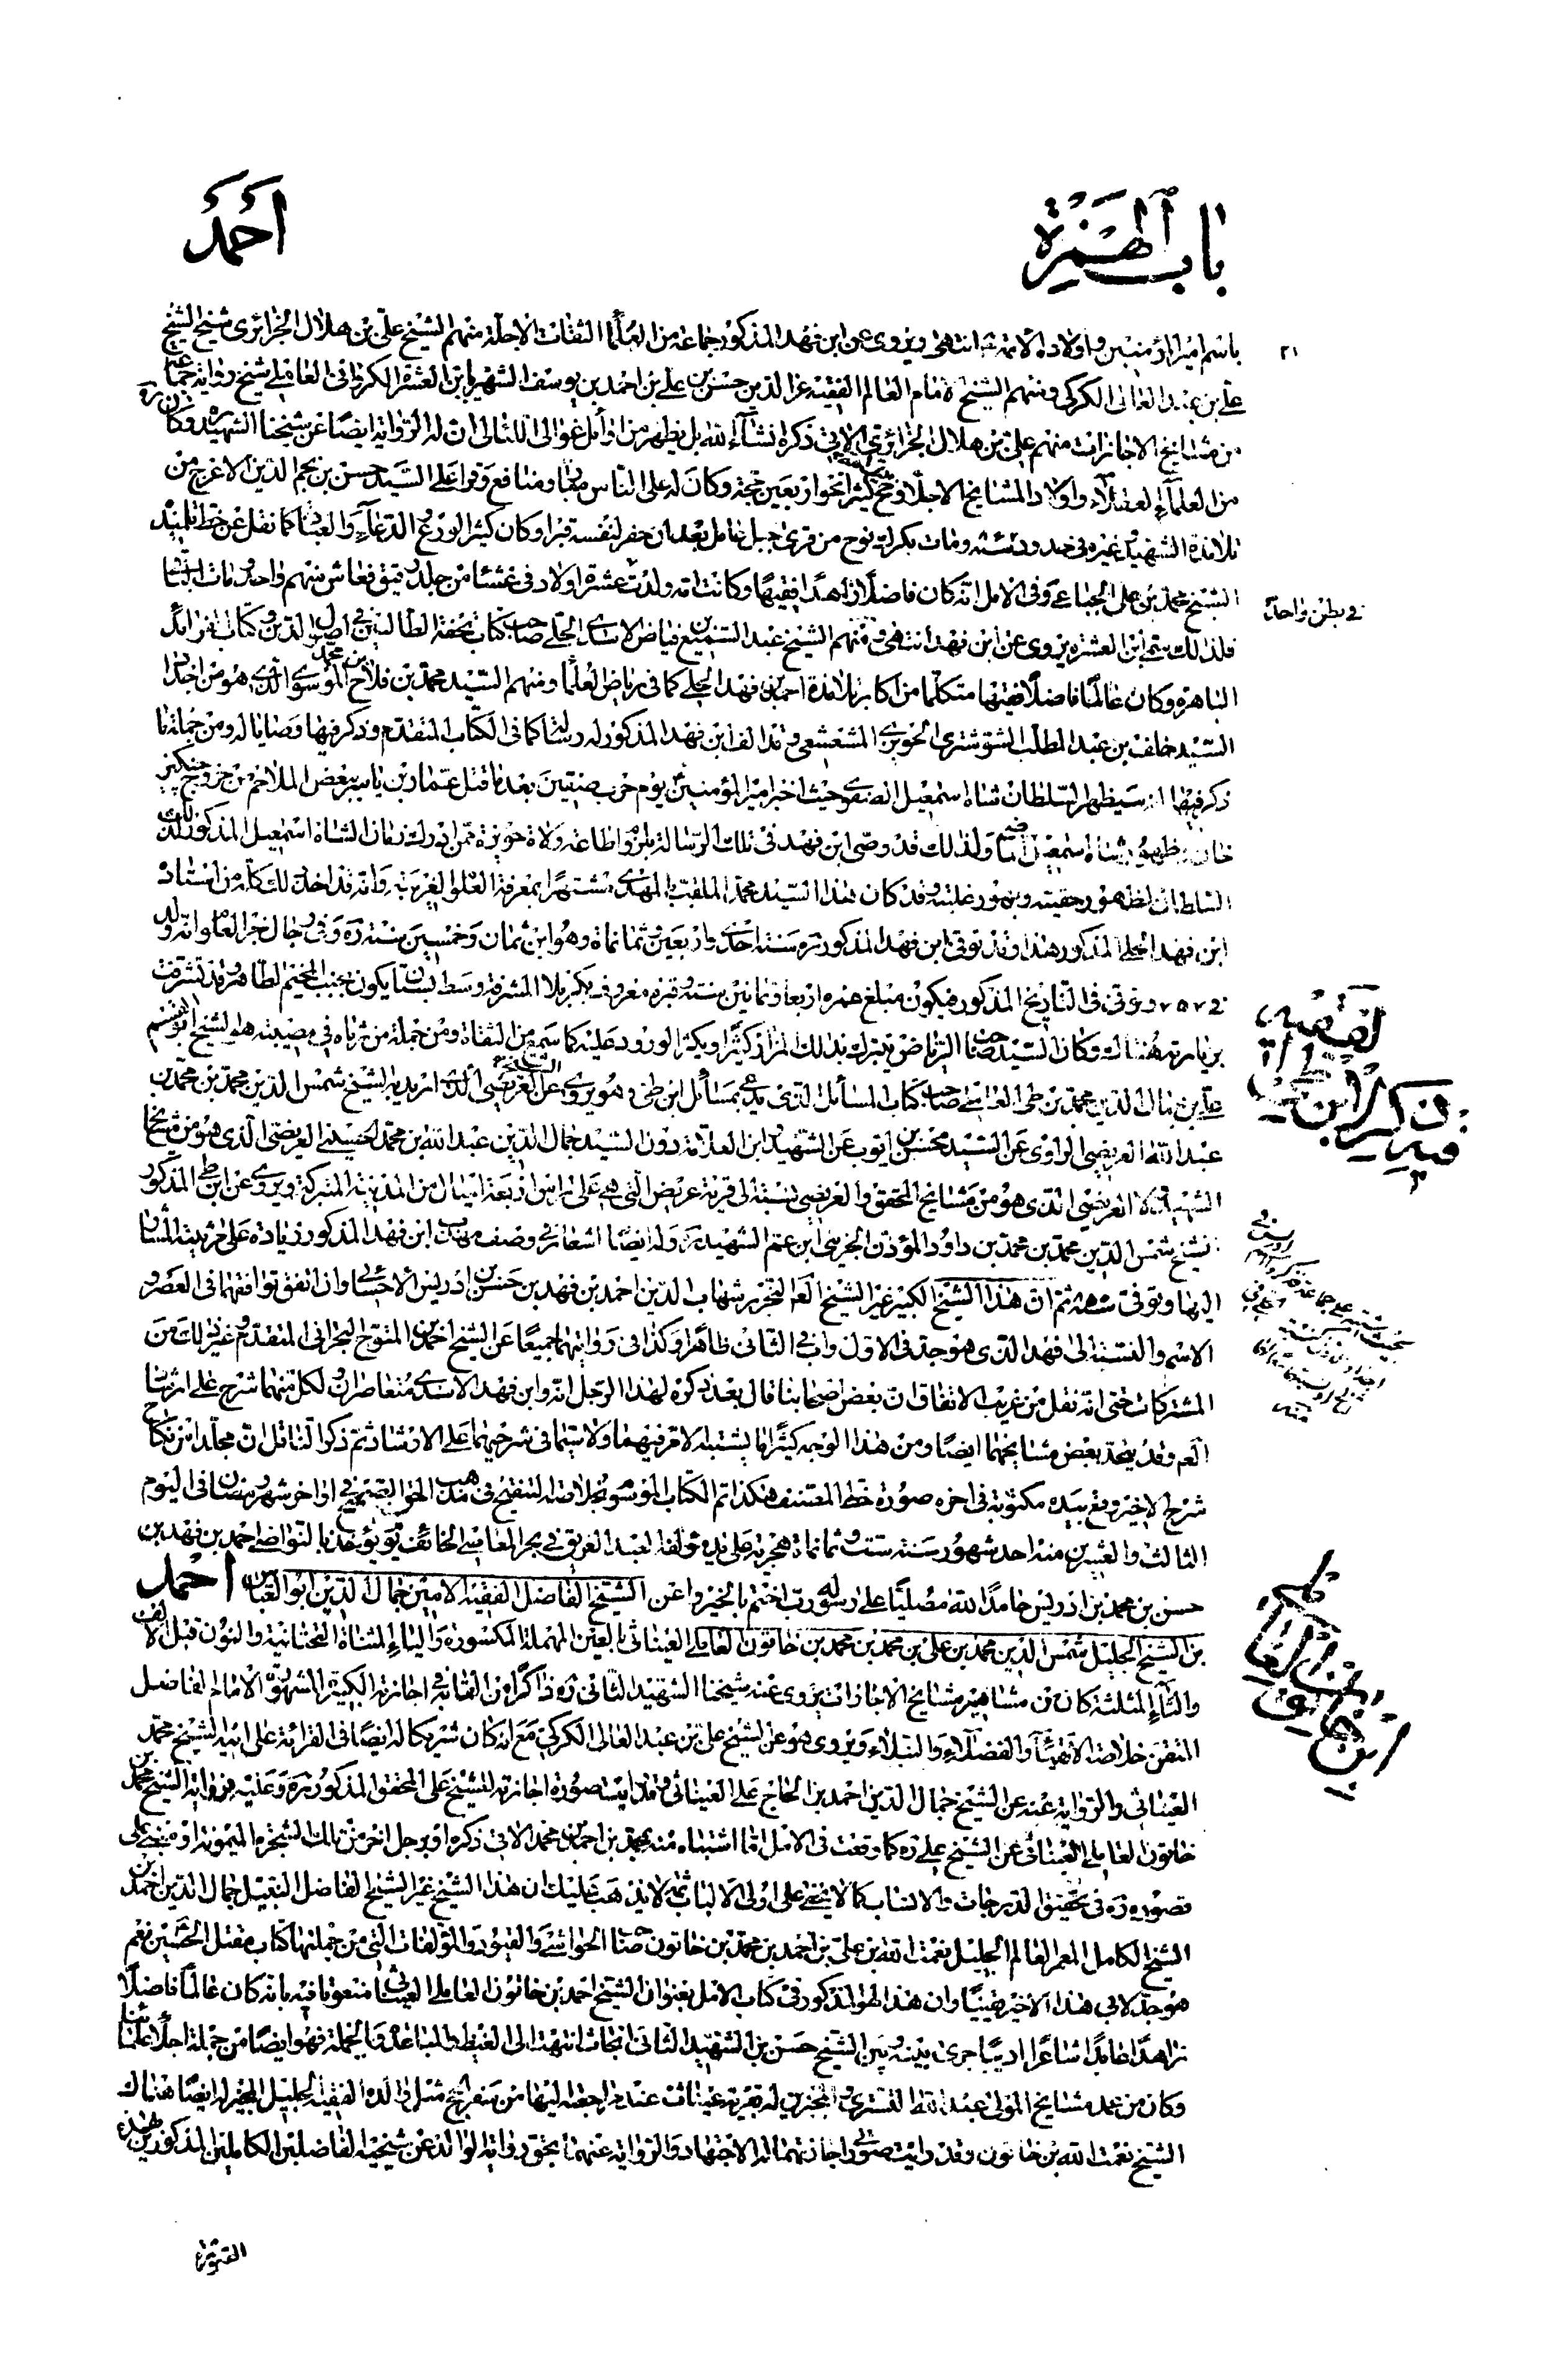 باب الهمزة
أحمد
٢١
باسم امیرالمؤمنین واولاده الائمة انتهی ویروی عن ابن فهد المذکور جماعة من العلماء الثقات الاجلة منهم الشیخ علی بن هلال الجزائری شیخ الشیخ
علی بن عبد العالی الکرکی ومنهم الشیخ الامام العالم الفقیه عز الدین حسن بن علی بن احمد بن یوسف الشهیر بابن العشرة الکروانی العاملی شیخ روایة جماعة
من مشایخ الاجازات منهم علی بن هلال الجزائری الاتی ذکره انشاء الله بل یظهر من اوائل غوالی اللئالی ان له الروایة ایضا عن شیخنا الشهید ره وکان
من العلماء العقلاء واولاد المشایخ الاجلاء وحج کثیرا نحوا من اربعین حجة وکان له علی الناس مبار ومنافع وقرا علی السید حسن بن نجم الدین الاعرج من
تلامذة الشهید وغیره فی حدود ومات بکرك نوح من قری جبل عامل بعد ان حفر لنفسه قبرا وکان کثیر الورع والدعاء والعبادة کما نقل عن خط تلمیذه
الشیخ محمد بن علی الجباعی وفی الامل انه کان فاضلا زاهدا فقیها وکانت امه ولدت عشرة اولاد فی غشاء من جلد رقیق فعاش منهم واحد ومات الباقی
فی بطن واحد
فلذلك سمی ابن العشرة یروی عن ابن فهد انتهی ومنهم الشیخ عبد السمیع بن فیاض الاسدی الحلی صاحب کتاب تحفة الطالبین فی اصول الدین وکتاب الفرائد
الباهرة وکان عالما فاضلا فقیها متکلما من اکابر تلامذة احمد بن فهد الحلی کما فی ریاض العلماء ومنهم السید محمد بن فلاح بن محمد الموسوی الذی هو من اجداد
السید خلف بن عبد المطلب الشوشتری الحویزی المشعشعی وقد الف ابن فهد المذکور له رسالة کما فی الکتاب المتقدم وذکر فیها وصایا له ومن جملة ما
ذکر فیها انه سیظهر السلطان شاه اسمعیل الصفوی حیث اخبر امیر المؤمنین یوم حرب صفین بعد ما قتل عمار بن یاسر ببعض الملاحم من خروج چنگیز
خان وظهور شاه اسمعیل الماضی ولذلك قد وصی ابن فهد فی تلك الرسالة بلزوم اطاعة ولاة حویزة ممن ادرك زمان الشاه اسمعیل المذکور لذلك
السلطان لظهور حقیته وبهور غلبته وقد کان هذا السید محمد الملقب بالمهدی مشتهرا بمعرفة العلوم الغریبة وانه قد اخذ ذلك کله من استاده
ابن فهد الحلی المذکور هذا وقد توفی ابن فهد المذکور ره سنة احدی واربعین وثمانمائة وهو ابن ثمان وخمسین سنة وفی رجال بحر العلوم انه ولد
فی ٧٥٧ وتوفی فی التاریخ المذکور فیکون مبلغ عمره اربعا وثمانین سنة وقبره معروف بکربلاء المشرفة وسط بستان یکون بجنب المخیم الطاهر وقد تشرفت
بزیارته هناك وکان السید صاحب الریاض یتبرك بذلك المزار کثیرا ویکثر الورود علیه کما سمع من الثقات ومن جملة من رثاه فی مصیبته هو الشیخ ابو القسم
علی بن جمال الدین محمد بن طی العاملی صاحب کتاب المسائل الذی یدعی بمسائل ابن طی وهو یروی عن العریضی الشیخ شمس الدین محمد بن محمد بن
عبد الله العریضی الراوی عن السید محسن بن ایوب عن الشهید ابن العلامة دون السید جمال الدین بن عبد الله بن محمد الحسینی العریضی الذی هو من مشایخ
الشهید ولا العریضی الذی هو من مشایخ المحقق والعریضی نسبة الی قریة عریض التی هی علی راس اربعة امیال من المدینة المتبرکة ویروی عن ابن طی المذکور
الشیخ شمس الدین محمد بن محمد بن داود المؤذن الجزینی ابن عم الشهید ره وله ایضا اشعار فی وصف مهذب ابن فهد المذکور زیادة علی مرثیته المشار
الیها وتوفی ثم ان هذا الشیخ الکبیر غیر الشیخ العالم النحریر شهاب الدین احمد بن فهد بن حسن بن ادریس الاحسائی وان اتفق توافقهما فی العصر و
الاسم والنسبة الی فهد الذی هو جد فی الاول واب فی الثانی ظاهرا وکذا فی روایتهما جمیعا عن الشیخ احمد بن المتوج البحرانی المتقدم وغیر ذلك من
المشترکات حتی انه نقل من غریب الاتفاق ان بعض اصحابنا قال بعد ذکره لهذا الرجل انه وابن فهد الاسدی متعاصران ولکل منهما شرح علی ارشاد
العلامة وقد یتحد بعض مشایخهما ایضا ومن هذا الوجه کثیرا ما یشتبه الامر فیهما ولا سیما فی شرحیهما علی الارشاد ثم ذکر الناقل ان مجلدا من نکاح
شرح الاخیر وقع بیده مکتوبة فی اخره صورة خط المصنف هکذا تم الکتاب الموسوم بخلاصة التنقیح فی مذهب الحق الصحیح فی اواخر شهر رمضان فی الیوم
الثالث والعشرین منه احد شهور سنة ست وثمانمائة هجریة علی ید مؤلفه العبد الغریق فی بحر المعاصی الخائف یوم یؤخذ بالنواصی احمد بن فهد بن
حسن بن محمد بن ادریس حامدا لله مصلیا علی رسوله رب اختم بالخیر واعن الشیخ الفاضل الفقیه الامین جمال الدین ابو العباس احمد
بن الشیخ الجلیل شمس الدین محمد بن علی بن محمد بن محمد بن خاتون العاملی العیناثی بالعین المهملة المکسورة والیاء المثناة التحتانیة والنون قبل الالف
والثاء المثلثة کان من مشاهیر مشایخ الاجازات یروی عنه شیخنا الشهید الثانی ره ذاکرا من القابه فی اجازته الکبیرة المشهورة الامام الفاضل
المتقن خلاصة الاتقیاء والفضلاء والنبلاء ویروی هو عن الشیخ علی بن عبد العالی الکرکی مع انه کان شریکا له ایضا فی القرائة علی ابیه الشیخ محمد
العیناثی والروایة عنه عن الشیخ جمال الدین احمد بن الحاج علی العیناثی وقد رایت صورة اجازته للشیخ علی المحقق المذکور ره وعلیه فروایة الشیخ محمد بن
خاتون العاملی العیناثی عن الشیخ علی ره کما وقعت فی الامل اما اشتباه منه بمحمد بن احمد بن محمد الاتی ذکره او برجل اخر من تلك الشجرة المیمونة او مبتنی علی
قصوره ره فی تحقیق الدرجات والانساب کما لا یخفی علی اولی الالباب ثم لا یذهب علیك ان هذا الشیخ غیر الشیخ الفاضل النبیل جمال الدین احمد بن
الشیخ الکامل المعمر العالم الجلیل نعمت الله بن علی بن احمد بن محمد بن خاتون صاحب الحواشی والقیود والمؤلفات التی من جملتها کتاب مقتل الحسین نعم
هو جد لابی هذا الاخیر یقینا وان هذا هو المذکور فی کتاب الامل بعنوان الشیخ احمد بن خاتون العاملی العیناثی منعوتا فیه بانه کان عالما فاضلا
زاهدا عابدا شاعرا ادیبا جری بینه وبین الشیخ حسن بن الشهید الثانی ابحاث انتهت الی الغیظ والمباعدة وبالجملة فهو ایضا من جملة اجلاء علمائنا
وکان من عمد مشایخ المولی عبد الله التستری والمجیزین له بقریة عیناث عند مراجعته الیها من سفر الحج مثل والده الفقیه الجلیل المجیز له ایضا هناك
الشیخ نعمت الله بن خاتون وقد رایت صورتی اجازتهما له الاجتهاد والروایة عنهما بحق روایة الوالد عن شیخیه الفاضلین الکاملین المذکورین هذه